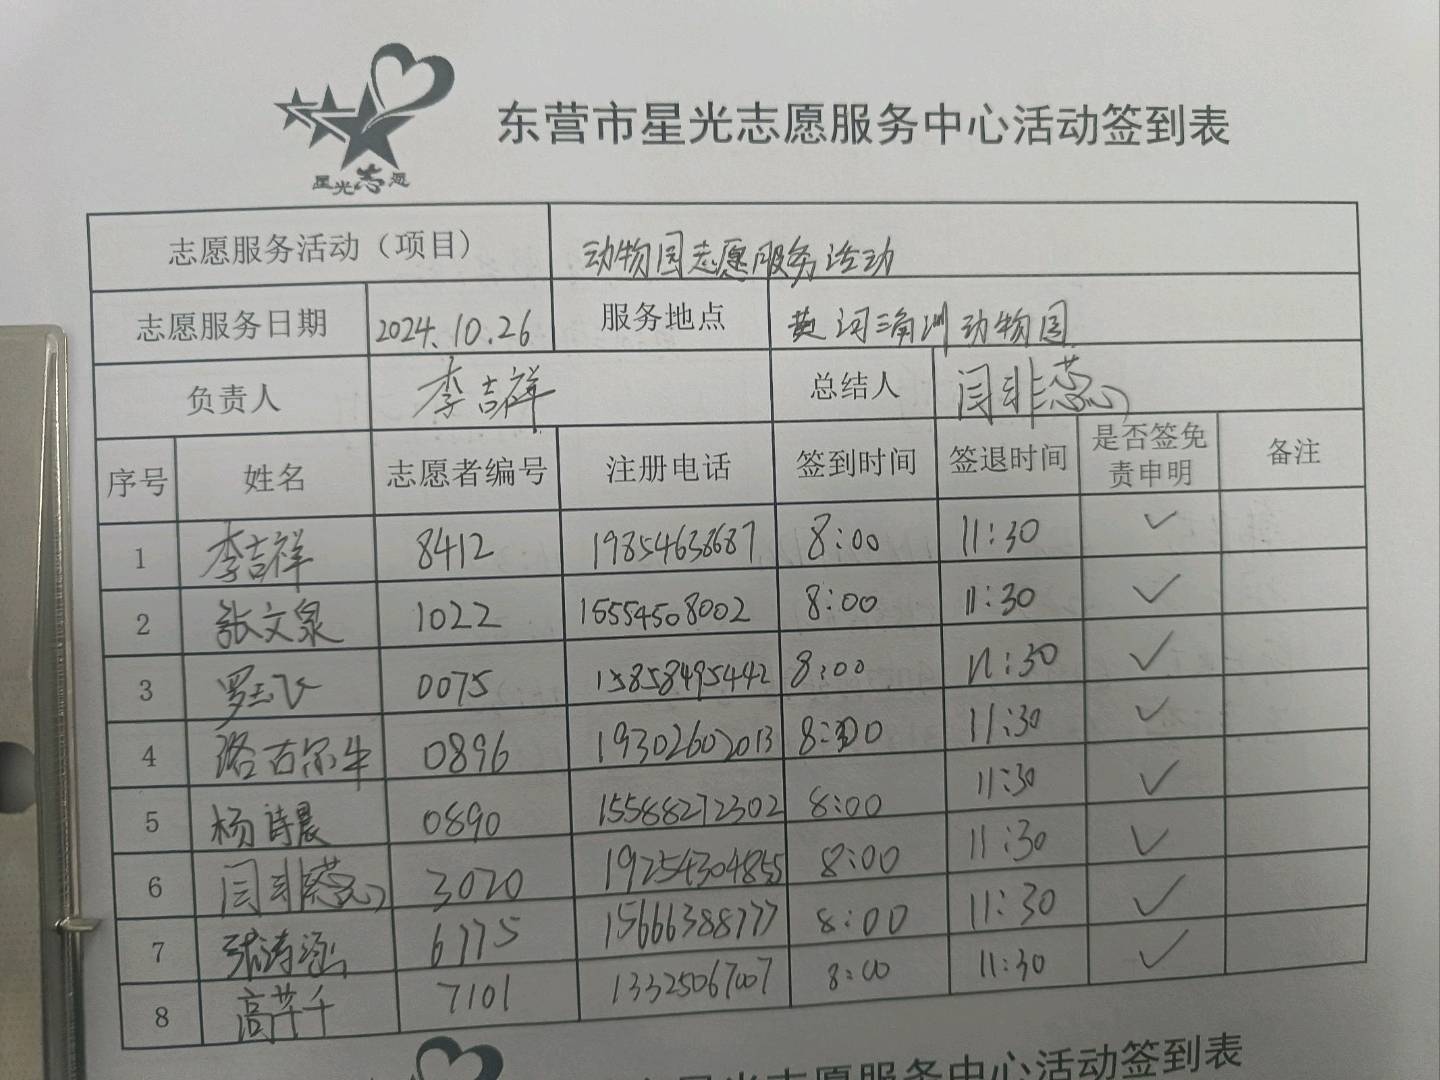 星光志愿
东营市星光志愿服务中心活动签到表
志愿服务活动（项目） 动物园志愿服务活动
志愿服务日期 2024.10.26 服务地点 黄河三角洲动物园
负责人 李吉祥 总结人 闫非蕊
序号 姓名 志愿者编号 注册电话 签到时间 签退时间 是否签免责申明 备注
1 李吉祥 8412 19854638687 8:00 11:30 ✓
2 张文泉 1022 15554508002 8:00 11:30 ✓
3 0075 15858495442 8:00 11:30 ✓
4 0896 19302602013 8:00 11:30 ✓
5 杨诗晨 0890 15588272302 8:00 11:30 ✓
6 闫非蕊 3020 19254304855 8:00 11:30 ✓
7 张涛涵 6775 15666388777 8:00 11:30 ✓
8 高芊千 7101 13325067007 8:00 11:30 ✓
星光志愿服务中心活动签到表